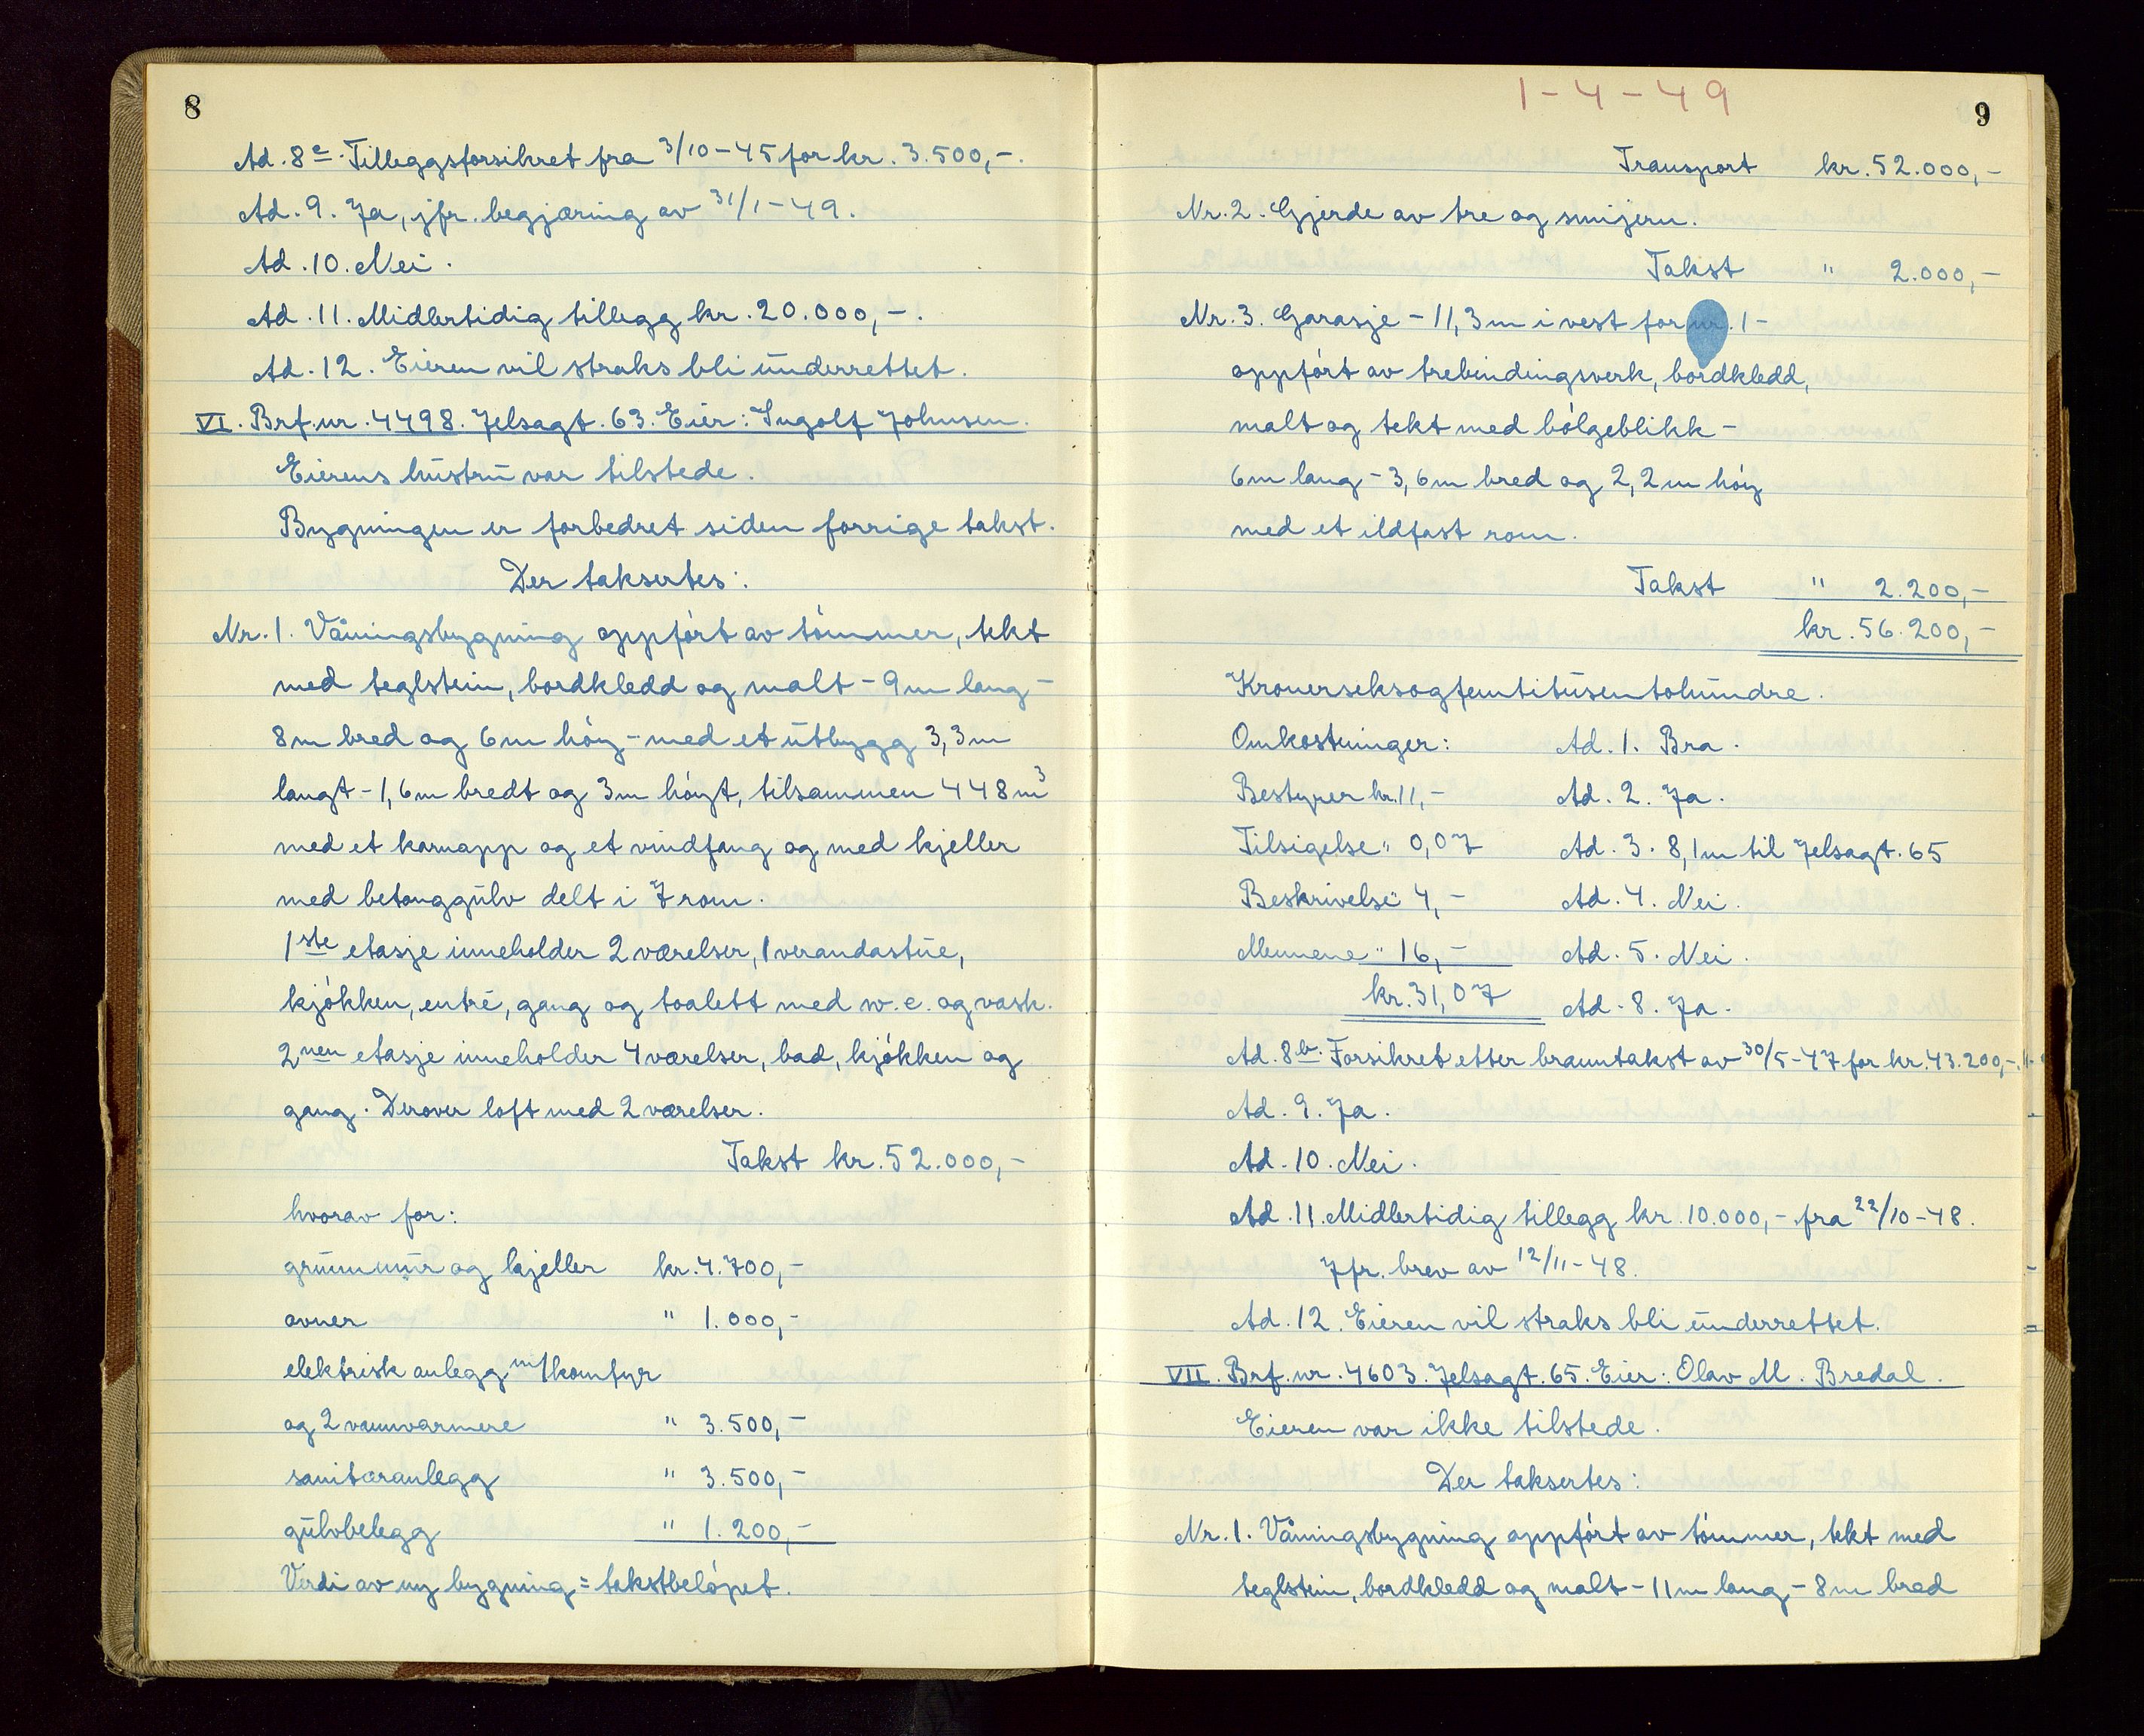 8
Ad. 8c. Tilleggsforsikret fra 3/10-45 for kr. 3.500,-.
Ad. 9. Ja, jfr. begjæring av 31/1-49.
Ad. 10. Nei.
Ad. 11. Midlertidig tillegg kr. 20.000,-.
Ad. 12. Eieren vil straks bli underrettet.
VI. Brf.nr. 4498. Jelsagt. 63. Eier: Ingolf Johnsen.
Eierens hustru var tilstede.
Bygningen er forbedret siden forrige takst.
Der taksertes:
Nr. 1. Våningsbygning oppført av tømmer, tekt
med teglstein, bordkledd og malt - 9m lang -
8m bred og 6m høy - med et utbygg 3,3m
langt - 1,6m bredt og 3m høyt, tilsammen 448 m3
med et karnapp og et vindfang og med kjeller
med betonggulv delt i 7 rom.
1ste etasje inneholder 2 værelser, 1 verandastue,
kjøkken, entré, gang og toalett med w.c. og vask.
2nen etasje inneholder 4 værelser, bad, kjøkken og
gang. Derover loft med 2 værelser.
Takst kr. 52.000,-
hvorav for:
grunnmur og kjeller kr. 4.700,-
ovner " 1.000,-
elektrisk anlegg m/1 komfyr
og 2 vannvarmere " 3.500,-
sanitæranlegg " 3.500,-
gulvbelegg " 1.200,-
Verdi av ny bygning = takstbeløpet.
1-4-49
9
Transport kr. 52.000,-
Nr. 2. Gjerde av tre og smijern.
Takst " 2.000,-
Nr. 3. Garasje - 11,3m i vest for nr. 1 -
oppført av trebindingsverk, bordkledd,
malt og tekt med bølgeblikk -
6m lang - 3,6m bred og 2,2m høy
med et ildfast rom.
Takst " 2.200,-
kr. 56.200,-
Kronerseksogfemtitusentohundre.
Omkostninger: Ad. 1. Bra.
Bestyrer kr. 11,- Ad. 2. Ja.
Tilsigelse " 0,07 Ad. 3. 8,1m til Jelsagt. 65
Beskrivelse " 4,- Ad. 4. Nei.
Mennene " 16,- Ad. 5. Nei.
kr. 31,07 Ad. 8. Ja.
Ad. 8b. Forsikret etter branntakst av 30/5-47 for kr. 43.200,-.
Ad. 9. Ja.
Ad. 10. Nei.
Ad. 11. Midlertidig tillegg kr. 10.000,- fra 22/10-48.
Jfr. brev av 12/11-48.
Ad. 12. Eieren vil straks bli underrettet.
VII. Brf.nr. 4603. Jelsagt. 65. Eier: Olav M. Bredal.
Eieren var ikke tilstede.
Der taksertes:
Nr. 1. Våningsbygning oppført av tømmer, tekt med
teglstein, bordkledd og malt - 11m lang - 8m bred